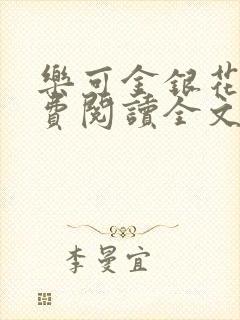 樂可金銀花
費閱讀全文
李曼宜